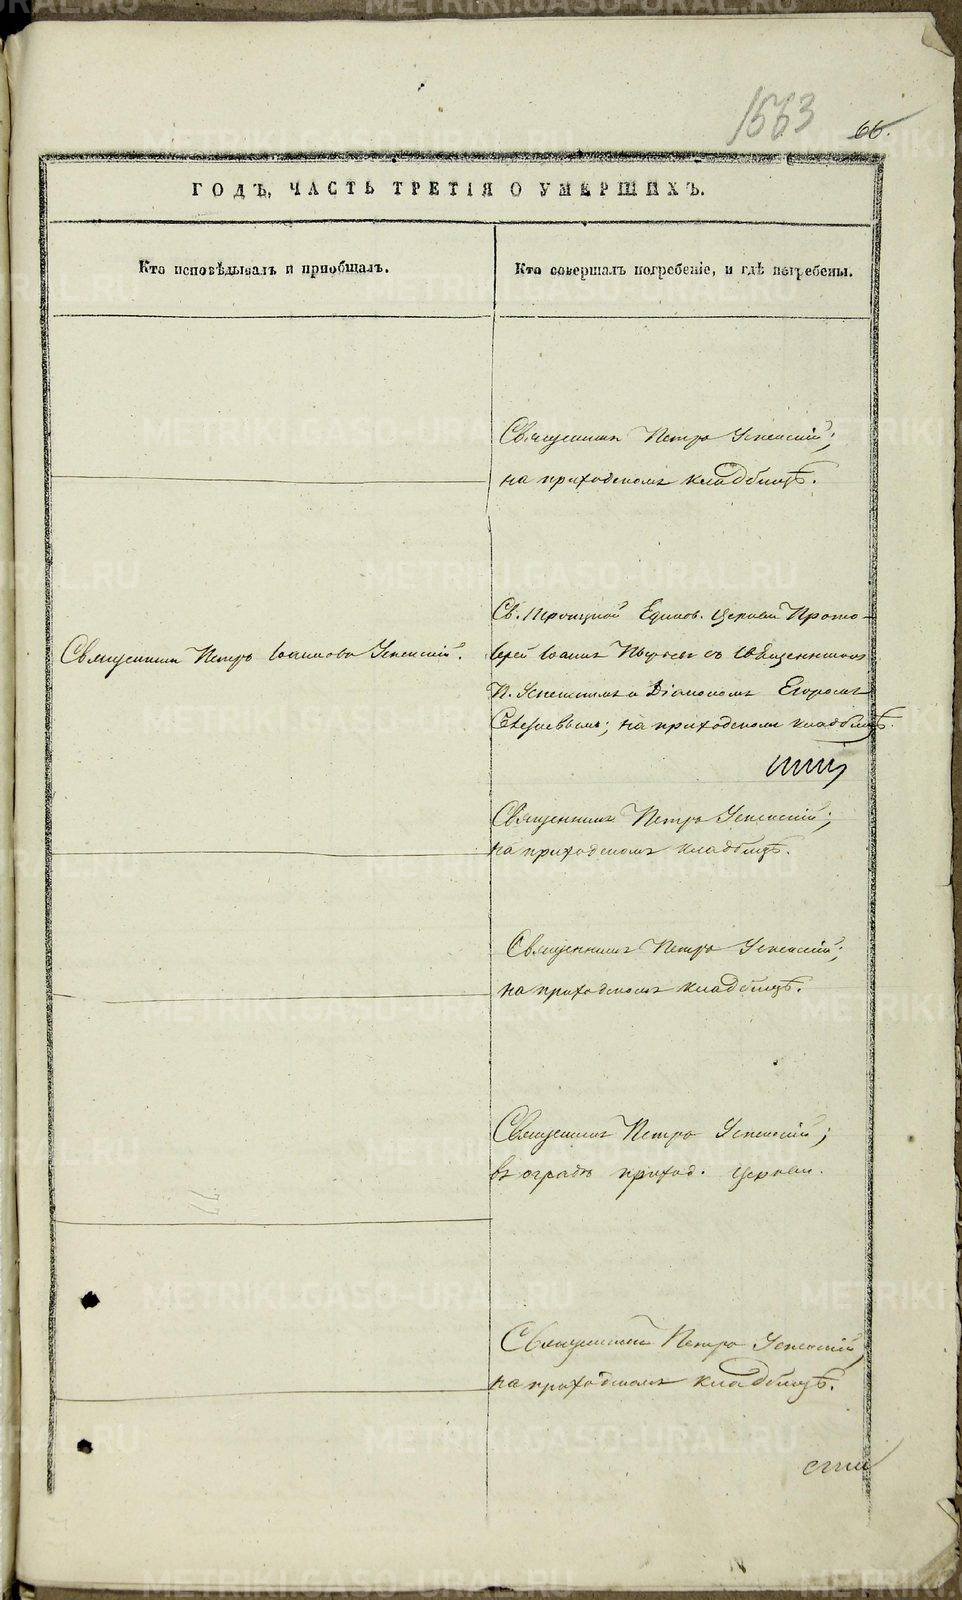 1563
66.
ГОДЪ, ЧАСТЬ ТРЕТІЯ О УМЕРШИХЪ.
Кто исповѣдывалъ и пріобщалъ.
Кто совершалъ погребеніе, и гдѣ погребены.
Священникъ Петръ Успенскій;
на приходскомъ кладбищѣ.
Священникъ Петръ Іоанновъ Успенскій.
Св. Троицкой Единов. Церкви Прото-
іерей Іоаннъ съ Священникомъ
П. Успенскимъ и Діакономъ Егоромъ
на приходскомъ кладбищѣ.
Священникъ Петръ Успенскій;
на приходскомъ кладбищѣ.
Священникъ Петръ Успенскій;
на приходскомъ кладбищѣ.
Священникъ Петръ Успенскій;
въ оградѣ приход. церкви.
Священникъ Петръ Успенскій,
на приходскомъ кладбищѣ.
METRIKI.GASO-URAL.RU